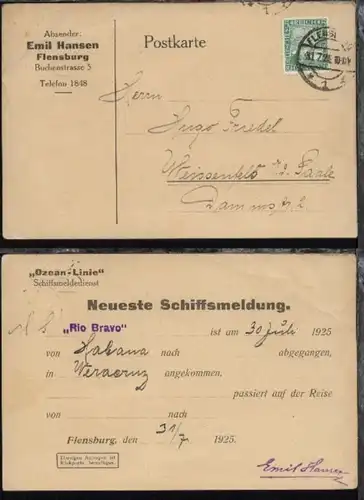 Absender:
Emil Hansen
Flensburg
Buchenstrasse 3
Telefon 1848
Postkarte
Herrn
Hugo Friedel
Weissenfels a. Saale
Dammstr. 2
„Ozean-Linie"
Schiffsmeldedienst
Neueste Schiffsmeldung.
„Rio Bravo" ist am 30 Juli 1925
von Habana nach abgegangen,
in Veracruz angekommen.
passiert auf der Reise
von nach
Flensburg, den 31/7 1925.
Emil Hansen